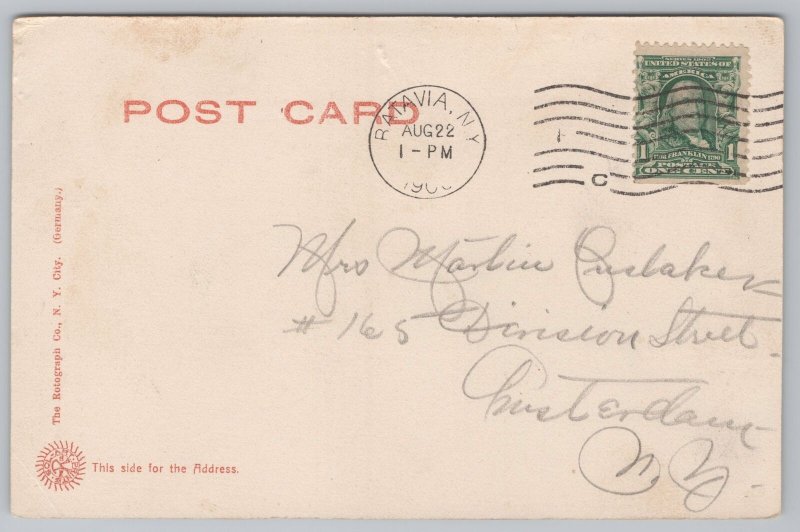 POST CARD
BATAVIA, N.Y.
AUG 22
1-PM
190
C
SERIES 1902
UNITED STATES OF
AMERICA
1 FRANKLIN 1790 1
POSTAGE
ONE CENT
Mrs Martin
# 165 Division Street
Amsterdam
N.Y.
The Rotograph Co., N. Y. City. (Germany.)
This side for the Address.